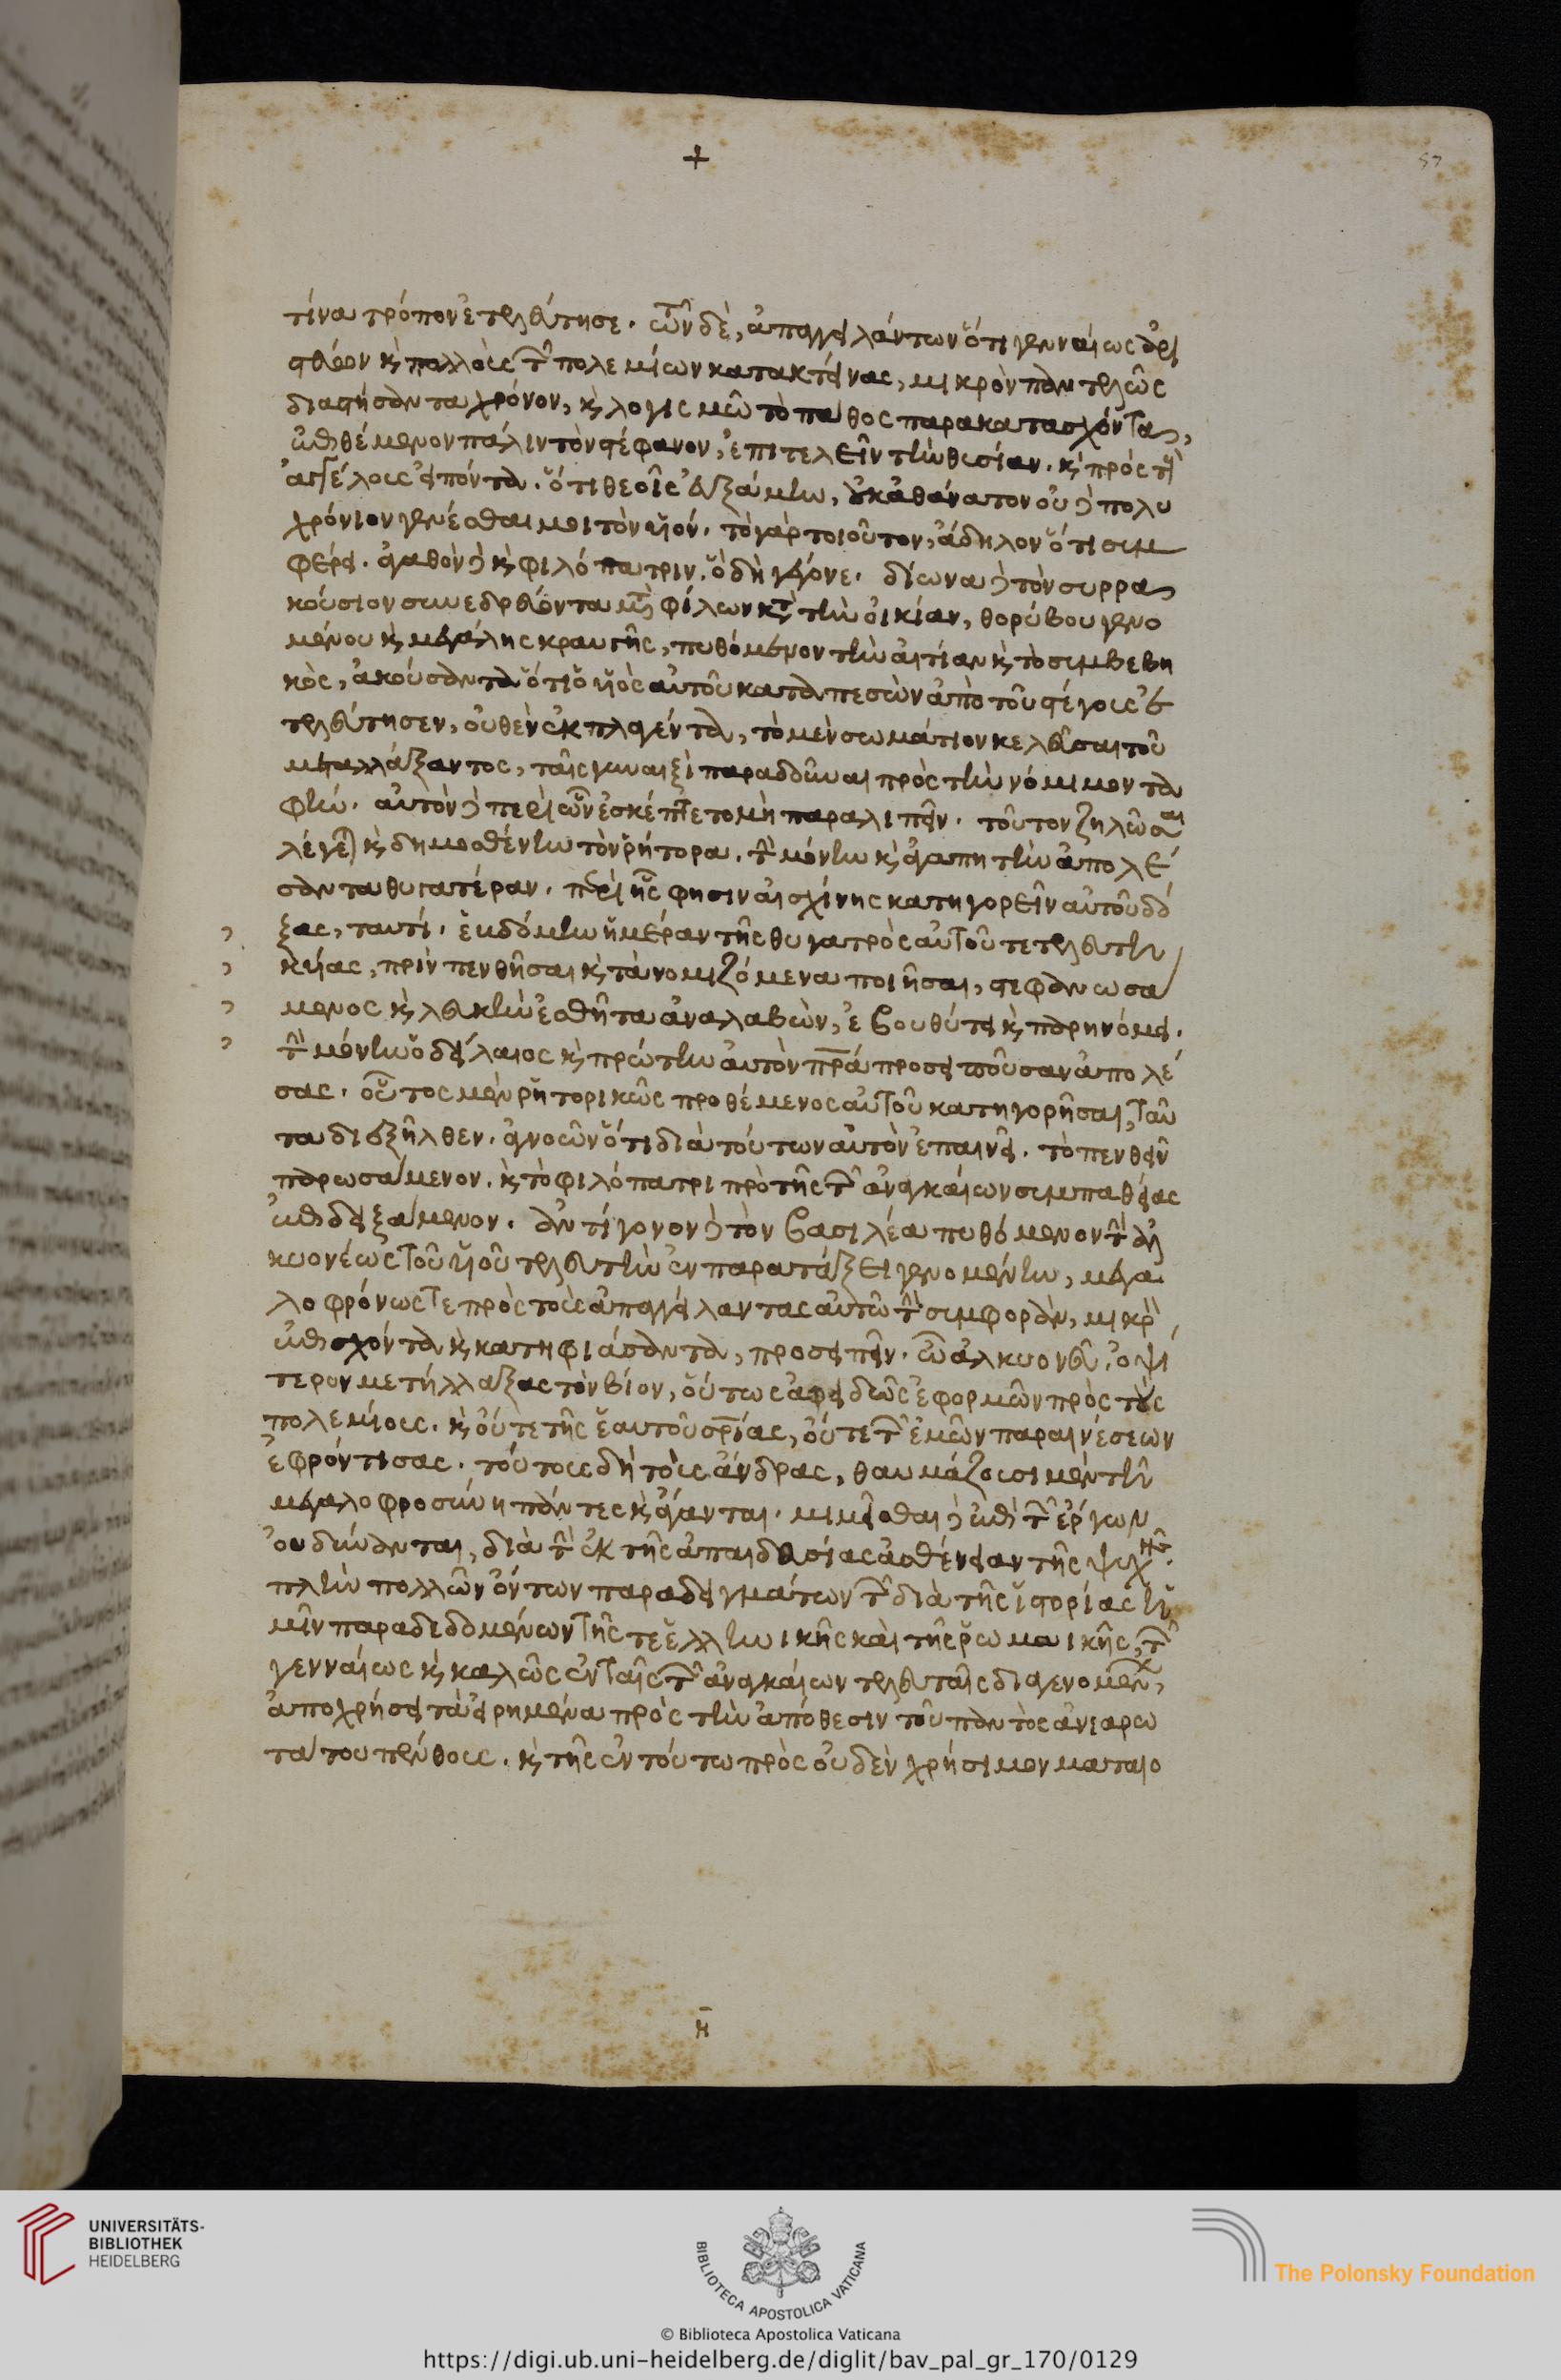 +
57
τίνα τρόπον ἐτελεύτησε. τῶν δὲ, ἀπαγγειλάντων ὅτι γενναίως ἀρι
στεύων καὶ πολλοὺς τῶν πολεμίων κατακτείνας, μικρὸν παντελῶς
διαστήσαντα χρόνον, καὶ λογισμῶ τὸ πάθος παρακατασχόντα,
ἐπιθέμενον πάλιν τὸν στέφανον, ἐπιτελεῖν τὴν θυσίαν. καὶ πρὸς τοὺς
ἀγγέλους εἰπόντα. ὅτι θεοῖς εὐξάμην, οὐκ ἀθάνατον οὐδὲ πολυ
χρόνιον γενέσθαι μοι τὸν υἱόν. τὸ γὰρ τοιοῦτον, ἄδηλον ὅτι συμ
φέρει. ἀγαθὸν δὲ καὶ φιλόπατριν. ὃ δὴ γέγονε. δίωνα δὲ τὸν συρρα
κούσιον συνεδρεύοντα μετὰ φίλων κατὰ τὴν οἰκίαν, θορύβου γενο
μένου καὶ μεγάλης κραυγῆς, πυθόμενον τὴν αἰτίαν καὶ τὸ συμβεβη
κὸς, ἀκούσαντα ὅτι ὁ υἱὸς αὐτοῦ καταπεσὼν ἀπὸ τοῦ στέγους ἐ
τελεύτησεν, οὐθὲν ἐκπλαγέντα, τὸ μὲν σωμάτιον κελεῦσαι τοῦ
μεταλλάξαντος, ταῖς γυναιξὶ παραδοῦναι πρὸς τὴν νόμιμον τα
φήν. αὐτὸν δὲ περὶ ὧν ἐσκέπτετο μὴ παραλιπεῖν. τοῦτον ζηλῶσαι
λέγεται καὶ δημοσθένην τὸν ῥήτορα. τὴν μόνην καὶ ἀγαπητὴν ἀπολέ
σαντα θυγατέραν. περὶ ἧς φησιν αἰσχίνης κατηγορεῖν αὐτοῦ δό
ξας, ταυτί. ἑβδόμην ἡμέραν τῆς θυγατρὸς αὐτοῦ τετελευτη
κυίας, πρὶν πενθῆσαι καὶ τὰ νομιζόμενα ποιῆσαι, στεφανωσά
μενος καὶ λευκὴν ἐσθῆτα ἀναλαβὼν, ἐβουθύτει καὶ παρηνόμει.
τὴν μόνην ὁ δείλαιος καὶ πρώτην αὐτὸν πρα προσειποῦσαν ἀπολέ
σας. οὗτος μὲν ῥητορικῶς προθέμενος αὐτοῦ κατηγορῆσαι, ταῦ
τα διεξῆλθεν. ἀγνοῶν ὅτι διὰ τούτων αὐτὸν ἐπαινεῖ. τὸ πενθεῖν
παρωσάμενον. καὶ τὸ φιλόπατρι πρὸ τῆς τῶν ἀναγκαίων συμπαθείας
ἐπιδειξάμενον. ἀντίγονον δὲ τὸν βασιλέα πυθόμενον τὴν ἀλ
κυονέως τοῦ υἱοῦ τελευτὴν ἐν παρατάξει γενομένην, μεγα
λοφρόνως τε πρὸς τοὺς ἀπαγγείλαντας αὐτῶ τὴν συμφορὰν, μικρὸν
ἐπισχόντα καὶ κατηφιάσαντα, προσειπεῖν. ὦ ἀλκυονεῦ, ὀψί
τερον μετήλλαξας τὸν βίον, οὕτως ἀφειδῶς ἐφορμῶν πρὸς τοὺς
πολεμίους. καὶ οὔτε τῆς ἑαυτοῦ σριας, οὔτε τῶν ἐμῶν παραινέσεων
ἐφρόντισας. τούτους δὴ τοὺς ἄνδρας, θαυμάζουσι μὲν τῆ
μεγαλοφροσύνη πάντες καὶ ἄγανται. μιμεῖσθαι δὲ ἐπὶ τῶν ἔργων
οὐ δύνανται, διὰ τὴν ἐκ τῆς ἀπαιδευσίας ἀσθένειαν τῆς ψυχῆς.
πλὴν πολλῶν ὄντων παραδειγμάτων τῶν διὰ τῆς ἱστορίας ἡ
μῖν παραδεδομένων τῆς τε ἑλληνικῆς καὶ τῆς ῥωμαικῆς, τῶν
γενναίως καὶ καλῶς ἐν ταῖς τῶν ἀναγκαίων τελευταῖς διαγενομένων,
ἀποχρήσει τὰ εἰρημένα πρὸς τὴν ἀπόθεσιν τοῦ παντὸς ἀνιαρω
τάτου πένθους. καὶ τῆς ἐν τούτω πρὸς οὐδὲν χρήσιμον ματαιο
η
UNIVERSITÄTS-
BIBLIOTHEK
HEIDELBERG
BIBLIOTECA APOSTOLICA VATICANA
The Polonsky Foundation
© Biblioteca Apostolica Vaticana
https://digi.ub.uni-heidelberg.de/diglit/bav_pal_gr_170/0129